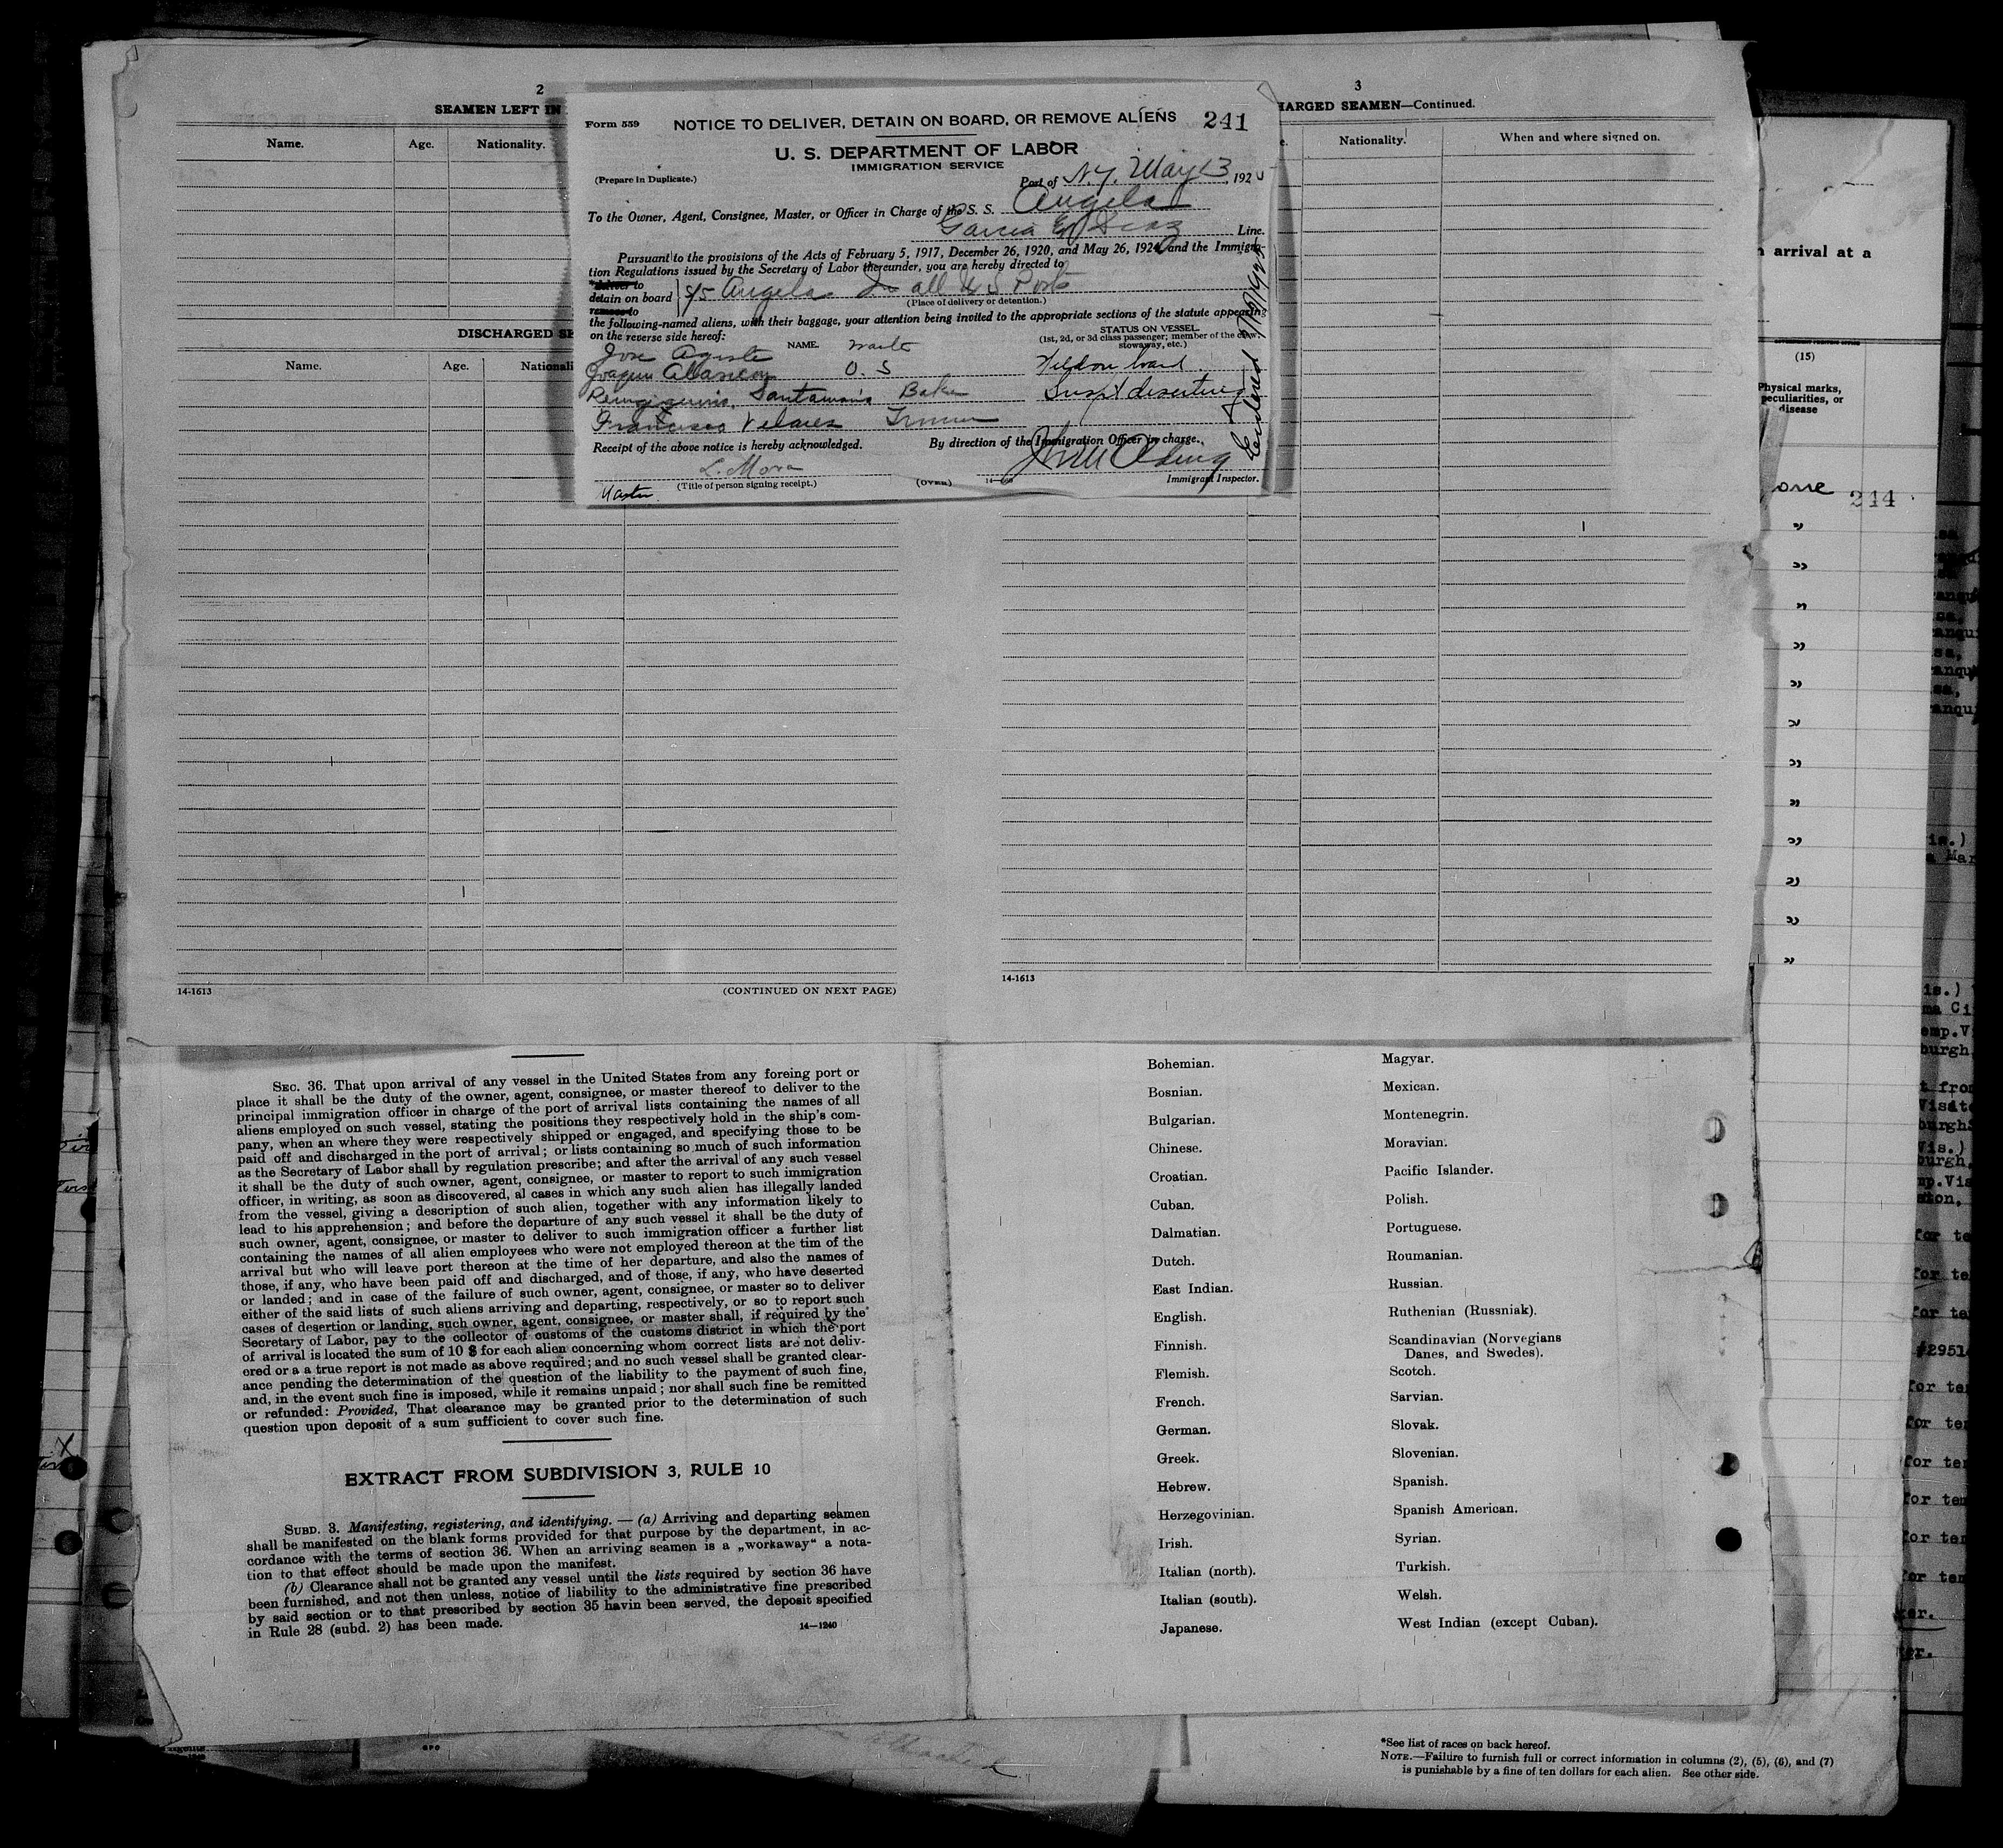 2
SEAMEN LEFT IN
Name. Age. Nationality.
DISCHARGED SE
Name. Age. Nationali
14-1613 (CONTINUED ON NEXT PAGE)
3
HARGED SEAMEN—Continued.
e. Nationality. When and where signed on.
14-1613
Form 559 NOTICE TO DELIVER, DETAIN ON BOARD, OR REMOVE ALIENS 241
U. S. DEPARTMENT OF LABOR
IMMIGRATION SERVICE
(Prepare in Duplicate.) Port of N.Y. May 13, 192
To the Owner, Agent, Consignee, Master, or Officer in Charge of the S. S. Angela
Garcia & Diaz Line.
Pursuant to the provisions of the Acts of February 5, 1917, December 26, 1920, and May 26, 1924, and the Immigra-
tion Regulations issued by the Secretary of Labor thereunder, you are hereby directed to
deliver to
detain on board S/S Angela In all U S Ports
remove to (Place of delivery or detention.)
the following-named aliens, with their baggage, your attention being invited to the appropriate sections of the statute appearing
on the reverse side hereof:
NAME. STATUS ON VESSEL
(1st, 2d, or 3d class passenger; member of the crew,
stowaway, etc.)
Jose
Joaquin O. S Held on board
Santamaria Baker Suspt deserting
Francisco Velares Trimmer
Receipt of the above notice is hereby acknowledged. By direction of the Immigration Officer in charge.
L. Mora
Master (Title of person signing receipt.) (OVER) 14— Immigrant Inspector.
Entered
SEC. 36. That upon arrival of any vessel in the United States from any foreing port or
place it shall be the duty of the owner, agent, consignee, or master thereof to deliver to the
principal immigration officer in charge of the port of arrival lists containing the names of all
aliens employed on such vessel, stating the positions they respectively hold in the ship's com-
pany, when an where they were respectively shipped or engaged, and specifying those to be
paid off and discharged in the port of arrival; or lists containing so much of such information
as the Secretary of Labor shall by regulation prescribe; and after the arrival of any such vessel
it shall be the duty of such owner, agent, consignee, or master to report to such immigration
officer, in writing, as soon as discovered, al cases in which any such alien has illegally landed
from the vessel, giving a description of such alien, together with any information likely to
lead to his apprehension; and before the departure of any such vessel it shall be the duty of
such owner, agent, consignee, or master to deliver to such immigration officer a further list
containing the names of all alien employees who were not employed thereon at the tim of the
arrival but who will leave port thereon at the time of her departure, and also the names of
those, if any, who have been paid off and discharged, and of those, if any, who have deserted
or landed; and in case of the failure of such owner, agent, consignee, or master so to deliver
either of the said lists of such aliens arriving and departing, respectively, or so to report such
cases of desertion or landing, such owner, agent, consignee, or master shall, if required by the
Secretary of Labor, pay to the collector of customs of the customs district in which the port
of arrival is located the sum of 10 $ for each alien concerning whom correct lists are not deliv-
ered or a a true report is not made as above required; and no such vessel shall be granted clear-
ance pending the determination of the question of the liability to the payment of such fine,
and, in the event such fine is imposed, while it remains unpaid; nor shall such fine be remitted
or refunded: Provided, That clearance may be granted prior to the determination of such
question upon deposit of a sum sufficient to cover such fine.
EXTRACT FROM SUBDIVISION 3, RULE 10
SUBD. 3. Manifesting, registering, and identifying. — (a) Arriving and departing seamen
shall be manifested on the blank forms provided for that purpose by the department, in ac-
cordance with the terms of section 36. When an arriving seamen is a „workaway“ a nota-
tion to that effect should be made upon the manifest.
(b) Clearance shall not be granted any vessel until the lists required by section 36 have
been furnished, and not then unless, notice of liability to the administrative fine prescribed
by said section or to that prescribed by section 35 havin been served, the deposit specified
in Rule 28 (subd. 2) has been made.
14—1240
Bohemian. Magyar.
Bosnian. Mexican.
Bulgarian. Montenegrin.
Chinese. Moravian.
Croatian. Pacific Islander.
Cuban. Polish.
Dalmatian. Portuguese.
Dutch. Roumanian.
East Indian. Russian.
English. Ruthenian (Russniak).
Finnish. Scandinavian (Norvegians
Danes, and Swedes).
Flemish. Scotch.
French. Sarvian.
German. Slovak.
Greek. Slovenian.
Hebrew. Spanish.
Herzegovinian. Spanish American.
Irish. Syrian.
Italian (north). Turkish.
Italian (south). Welsh.
Japanese. West Indian (except Cuban).
arrival at a
(15)
Physical marks,
peculiarities, or
disease
244
*See list of races on back hereof.
NOTE.—Failure to furnish full or correct information in columns (2), (5), (6), and (7)
is punishable by a fine of ten dollars for each alien. See other side.
GPO
#2951